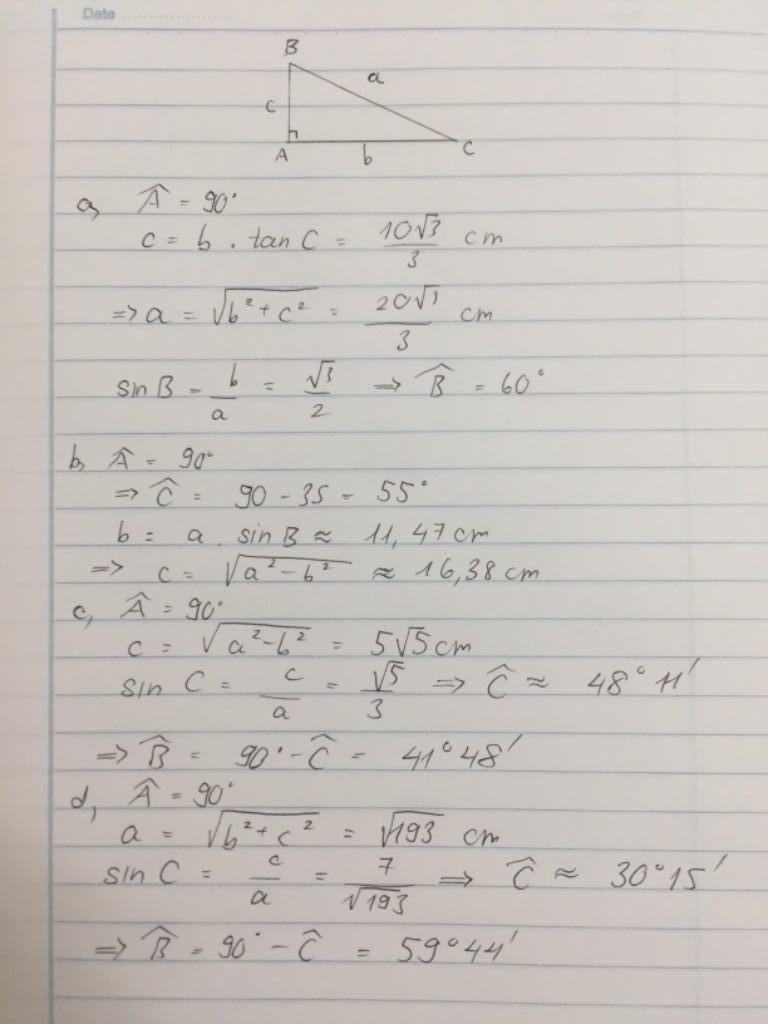 Date
B
a
c
A
b
C
a, Â = 90°
c = b . tan C = 10√3/3 cm
=> a = √(b² + c²) = 20√3/3 cm
sin B = b/a = √3/2 => B̂ = 60°
b, Â = 90°
=> Ĉ = 90 - 35 = 55°
b = a . sin B ≈ 11,47 cm
=> c = √(a² - b²) ≈ 16,38 cm
c, Â = 90°
c = √(a² - b²) = 5√5 cm
sin C = c/a = √5/3 => Ĉ ≈ 48° 11'
=> B̂ = 90° - Ĉ = 41° 48'
d, Â = 90°
a = √(b² + c²) = √193 cm
sin C = c/a = 7/√193 => Ĉ ≈ 30° 15'
=> B̂ = 90° - Ĉ = 59° 44'